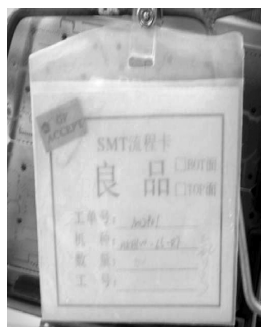 QV
ACCEPT
SMT流程卡
良 品
□BOT面
□TOP面
工单号:
机 种:
数 量:
工 号: